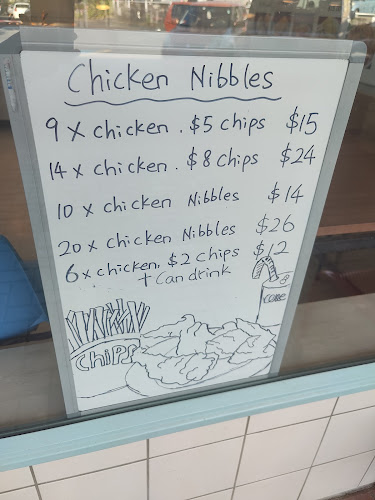 Chicken Nibbles
9 x chicken . $5 chips $15
14 x chicken . $8 chips $24
10 x chicken Nibbles $14
20 x chicken Nibbles $26
6 x chicken. $2 chips $12
+ Can drink
CHiPS